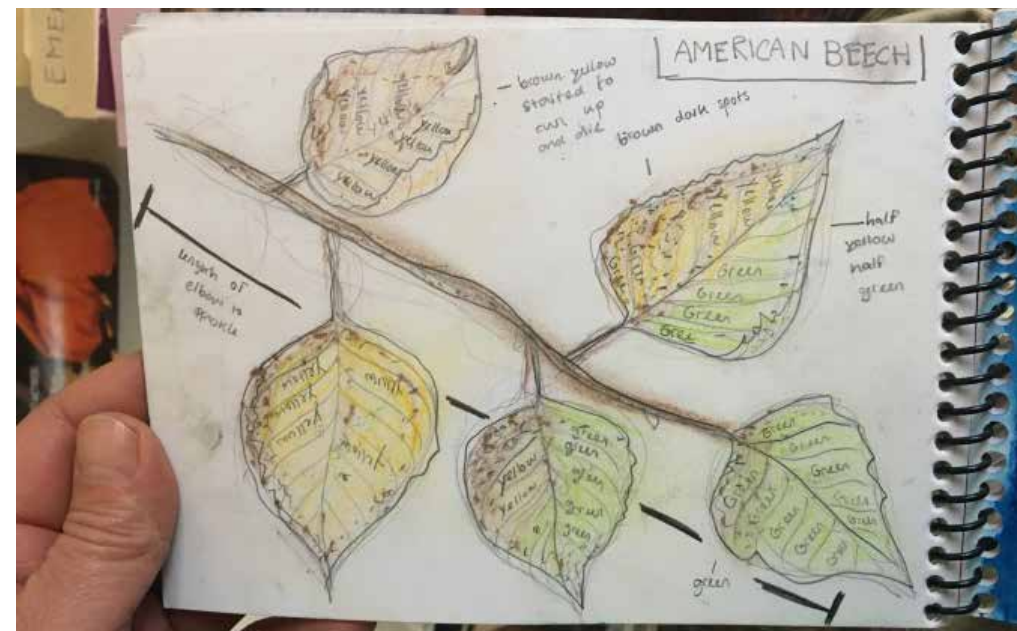 EME
AMERICAN BEECH
brown yellow
started to
curl up
and die
brown dark spots
half
yellow
half
green
length of
elbow to
yellow
yellow
yellow
yellow
yellow
yellow
yellow
yellow
Yellow
Yellow
Green
Green
Green
Green
Yellow
Yellow
Yellow
yellow
yellow
yellow
yellow
green
green
green
green
green
Green
Green
Green
Green
Green
Green
Green
Green
Green
green